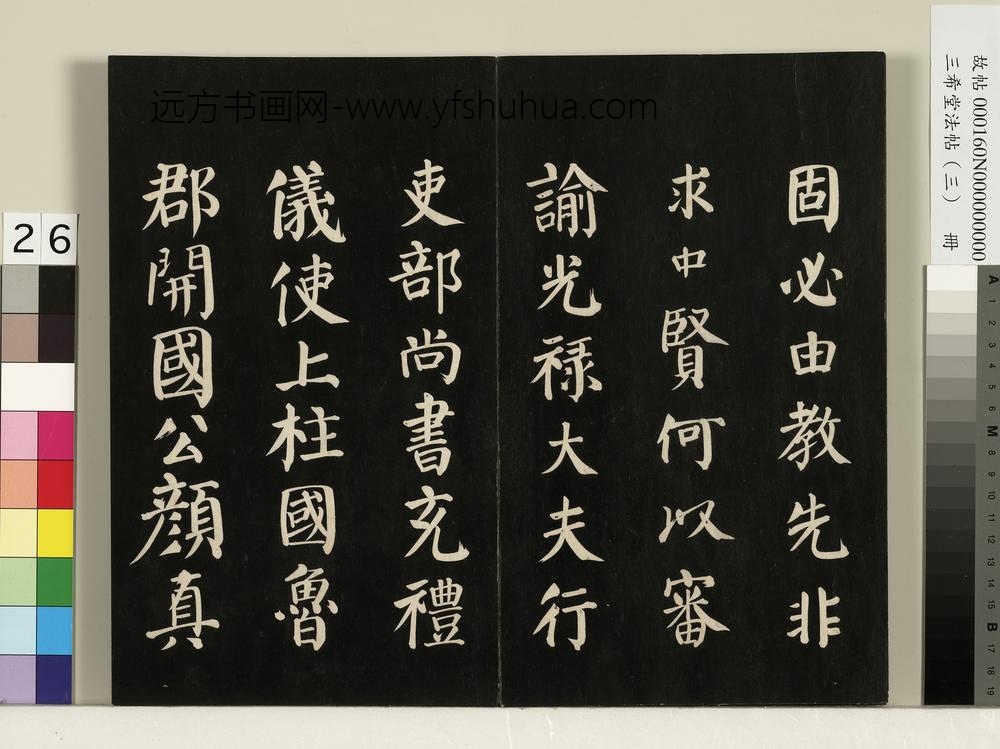 固必由教先非
求中賢何以審
諭光祿大夫行
吏部尚書充禮
儀使上柱國魯
郡開國公顏真
远方书画网-www.yfshuhua.com
故帖 000160N000000000
三希堂法帖（三） 冊
26
A 1 2 3 4 5 6 M 8 9 10 11 12 13 14 15 B 17 18 19